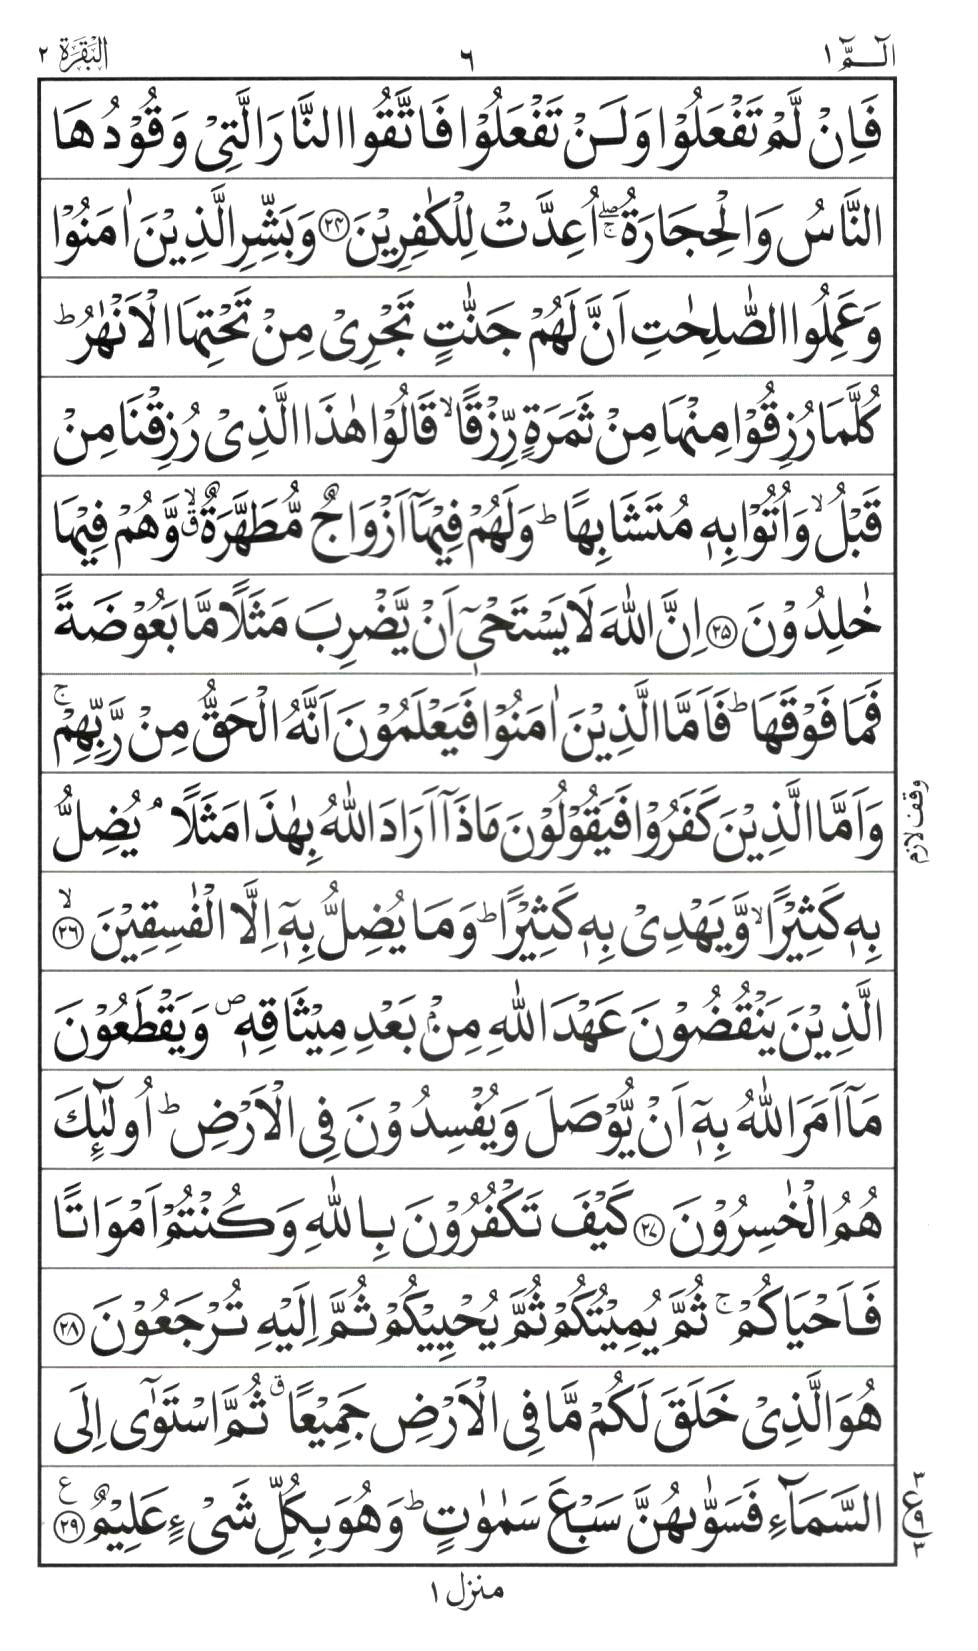 الٓـمّٓ ١
٦
البقرة ٢
فَاِنْ لَّمْ تَفْعَلُوْا وَلَنْ تَفْعَلُوْا فَاتَّقُوا النَّارَ الَّتِىْ وَقُوْدُهَا
النَّاسُ وَالْحِجَارَةُ ۖۚ اُعِدَّتْ لِلْكٰفِرِيْنَ ﴿۲۴﴾ وَبَشِّرِ الَّذِيْنَ اٰمَنُوْا
وَعَمِلُوا الصّٰلِحٰتِ اَنَّ لَهُمْ جَنّٰتٍ تَجْرِىْ مِنْ تَحْتِهَا الْاَنْهٰرُ ؕ
كُلَّمَا رُزِقُوْا مِنْهَا مِنْ ثَمَرَةٍ رِّزْقًا ۙ قَالُوْا هٰذَا الَّذِىْ رُزِقْنَا مِنْ
قَبْلُ ۙ وَاُتُوْا بِهٖ مُتَشَابِهًا ؕ وَلَهُمْ فِيْهَاۤ اَزْوَاجٌ مُّطَهَّرَةٌ ۙۗ وَّهُمْ فِيْهَا
خٰلِدُوْنَ ﴿۲۵﴾ اِنَّ اللّٰهَ لَا يَسْتَحْىٖۤ اَنْ يَّضْرِبَ مَثَلًا مَّا بَعُوْضَةً
فَمَا فَوْقَهَا ؕ فَاَمَّا الَّذِيْنَ اٰمَنُوْا فَيَعْلَمُوْنَ اَنَّهُ الْحَقُّ مِنْ رَّبِّهِمْ ۚ
وَاَمَّا الَّذِيْنَ كَفَرُوْا فَيَقُوْلُوْنَ مَاذَاۤ اَرَادَ اللّٰهُ بِهٰذَا مَثَلًا ۘ يُضِلُّ
وقف لازم
بِهٖ كَثِيْرًا ۙ وَّيَهْدِىْ بِهٖ كَثِيْرًا ؕ وَمَا يُضِلُّ بِهٖۤ اِلَّا الْفٰسِقِيْنَ ۙ ﴿۲۶﴾
الَّذِيْنَ يَنْقُضُوْنَ عَهْدَ اللّٰهِ مِنْۢ بَعْدِ مِيْثَاقِهٖ ص وَيَقْطَعُوْنَ
مَاۤ اَمَرَ اللّٰهُ بِهٖۤ اَنْ يُّوْصَلَ وَيُفْسِدُوْنَ فِى الْاَرْضِ ؕ اُولٰٓئِكَ
هُمُ الْخٰسِرُوْنَ ﴿۲۷﴾ كَيْفَ تَكْفُرُوْنَ بِاللّٰهِ وَكُنْتُمْ اَمْوَاتًا
فَاَحْيَاكُمْ ۚ ثُمَّ يُمِيْتُكُمْ ثُمَّ يُحْيِيْكُمْ ثُمَّ اِلَيْهِ تُرْجَعُوْنَ ﴿۲۸﴾
هُوَ الَّذِىْ خَلَقَ لَكُمْ مَّا فِى الْاَرْضِ جَمِيْعًا ق ثُمَّ اسْتَوٰٓى اِلَى
السَّمَآءِ فَسَوّٰىهُنَّ سَبْعَ سَمٰوٰتٍ ؕ وَهُوَ بِكُلِّ شَىْءٍ عَلِيْمٌ ع ﴿۲۹﴾
٣
ع ٩
٣
منزل ١